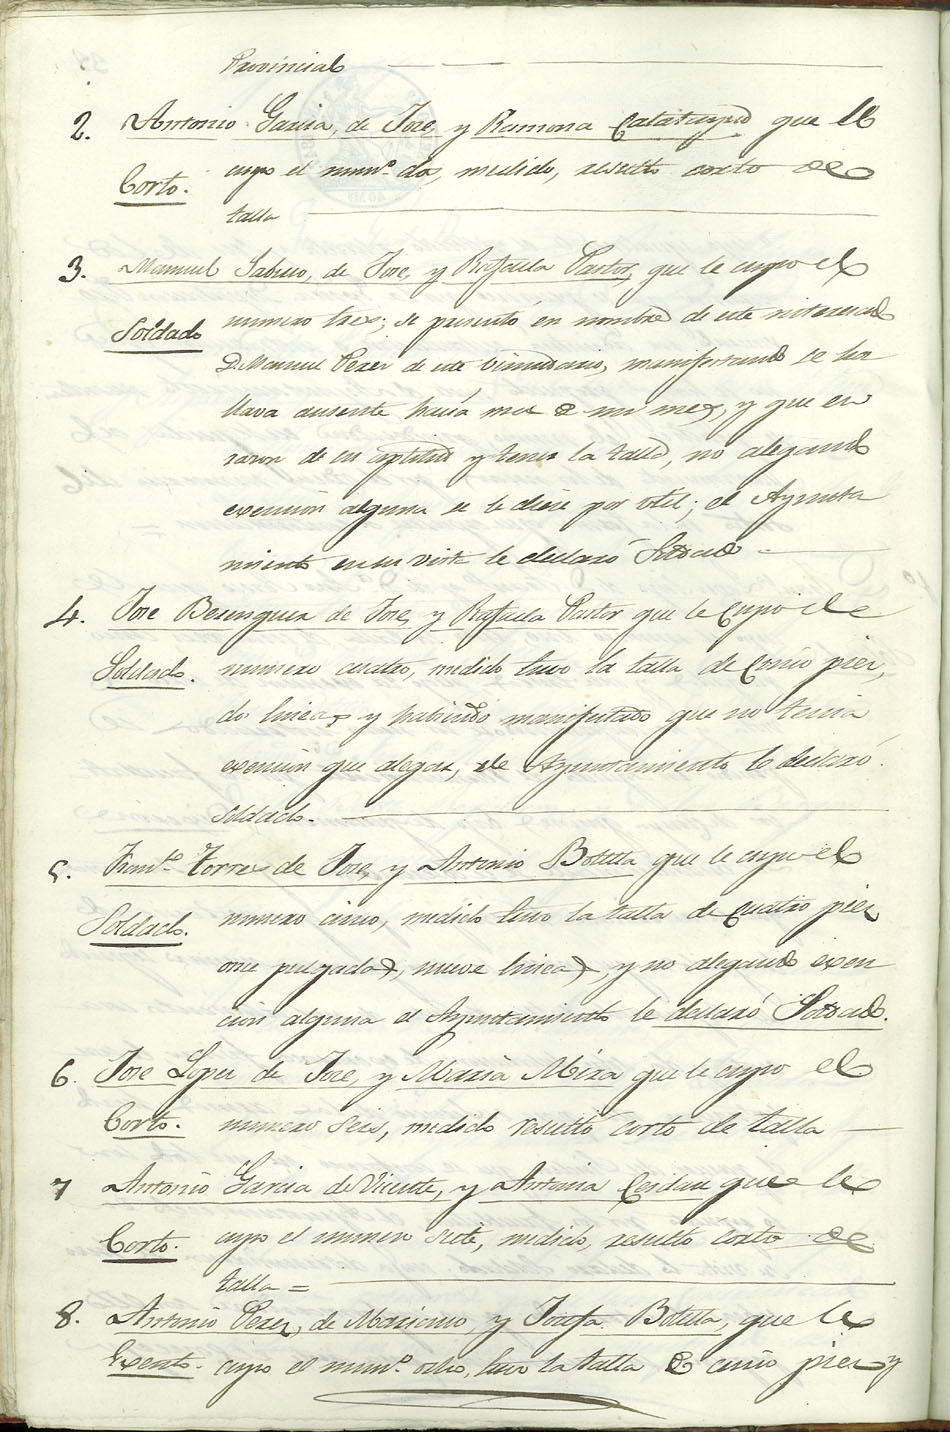 Provincial
2. Antonio Garcia, de Jose, y Ramona Calatayud que le
Corto. cupo el num.º dos, medido, resultó corto de
talla
3. Manuel Sabuco, de Jose, y Rafaela Pastor, que le cupo el
Soldado numero tres; se presentó en nombre de este interesado
D. Manuel Perez de este vecindario, manifestando se ha
llava ausente hacia mas de un mes, y que en
razon de su aptitud y tener la talla, no alegando
exencion alguna se le diese por util; el Ayunta
miento en su vista le declaró Soldado
4. Jose Berenguer de Jose, y Rafaela Pastor que le cupo el
Soldado. numero cuatro, medido tuvo la talla de cinco pies,
dos lineas y habiendo manifestado que no tenia
exencion que alegar, el Ayuntamiento le declaró
soldado.
5. Fran.co Torres de Jose, y Antonia Botella que le cupo el
Soldado. numero cinco, medido tuvo la talla de cuatro pies,
once pulgadas, nueve lineas, y no alegando exen
cion alguna el Ayuntamiento le declaró Soldado.
6. Jose Lopez de Jose, y Maria Mira que le cupo el
Corto. numero seis, medido resultó corto de talla
7 Antonio Garcia de Vicente, y Antonia Cerdan que le
Corto. cupo el numero siete, medido, resultó corto de
talla =
8. Antonio Perez, de Mariano, y Josefa Botella, que le
Exento. cupo el num.º ocho, tuvo la talla de cinco pies y